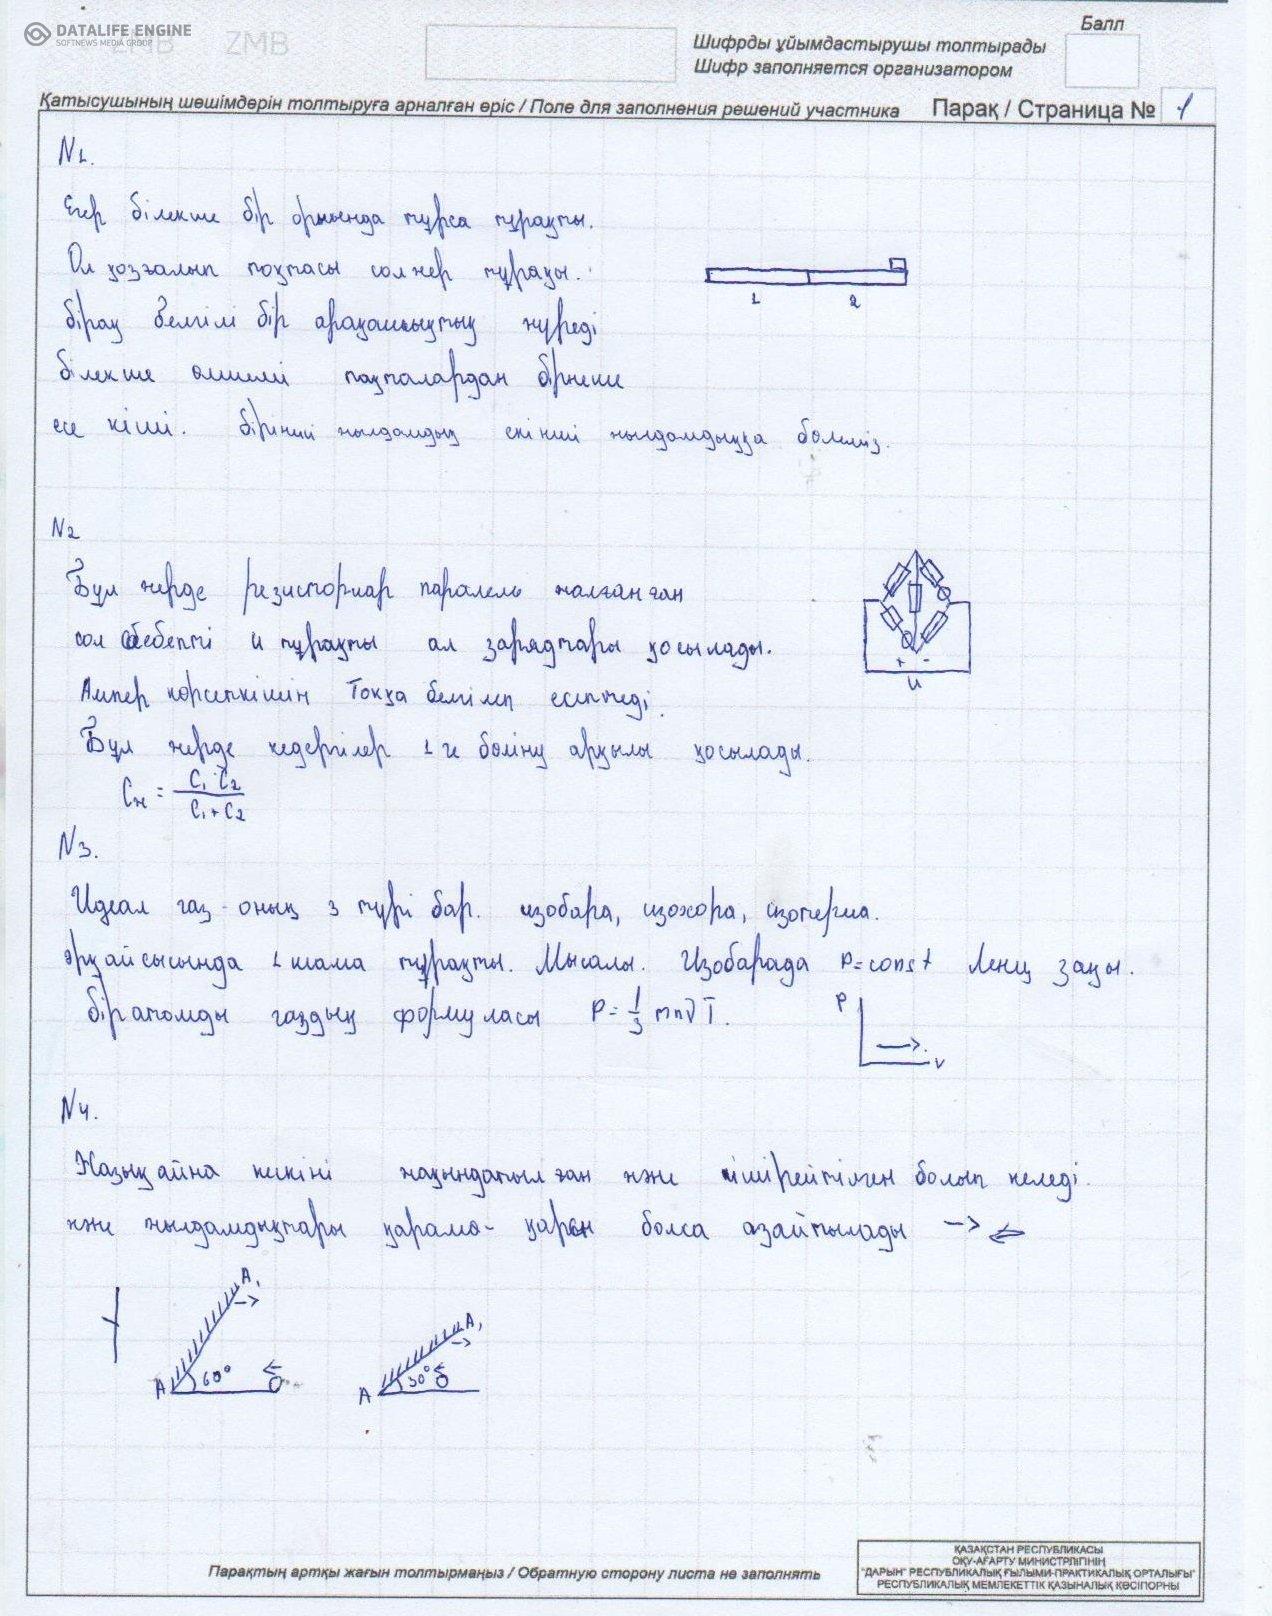 DATALIFE ENGINE
SOFTNEWS MEDIA GROUP
ZMB ZMB
Балл
Шифрды ұйымдастырушы толтырады
Шифр заполняется организатором
Қатысушының шешімдерін толтыруға арналған өріс / Поле для заполнения решений участника Парақ / Страница № 1
N1.
Егер білекше бір орнында тұрса тұрақты.
Ол қозғалып тоқтасы солжер тұрақы.
бірақ белгілі бір арақашықтық жүреді
1 2
білекше өлшемі тақталардан бірнеше
есе кіші. бірінші жылдамдық екінші жылдамдыққа бөлеміз.
N2
Бұл жерде резисторлар паралель жалғанған
сол себепті u тұрақты ал зарядтары қосылады.
+ -
u
Ампер көрсеткішін Токқа белгілеп есептеді.
Бұл жерде кедергілер 1 ге бөліну арқылы қосылады.
Cж = C1·C2 / C1+C2
N3.
Идеал газ оның 3 түрі бар. изобара, изохора, изотерма.
әрқайсысында 1 шама тұрақты. Мысалы. Изобарада P=const Ленц заңы.
бір атомды газдың формуласы P = 1/3 mnνT.
P
V
N4.
Жазық айна кескіні жақындатылған және кішірейтілген болып келеді.
және жылдамдықтары қарама-қарсы болса азайтылады → ←
A1 A1
A 60° A 30°
Парақтың артқы жағын толтырмаңыз / Обратную сторону листа не заполнять
ҚАЗАҚСТАН РЕСПУБЛИКАСЫ
ОҚУ-АҒАРТУ МИНИСТРЛІГІНІҢ
"ДАРЫН" РЕСПУБЛИКАЛЫҚ ҒЫЛЫМИ-ПРАКТИКАЛЫҚ ОРТАЛЫҒЫ"
РЕСПУБЛИКАЛЫҚ МЕМЛЕКЕТТІК ҚАЗЫНАЛЫҚ КӘСІПОРНЫ